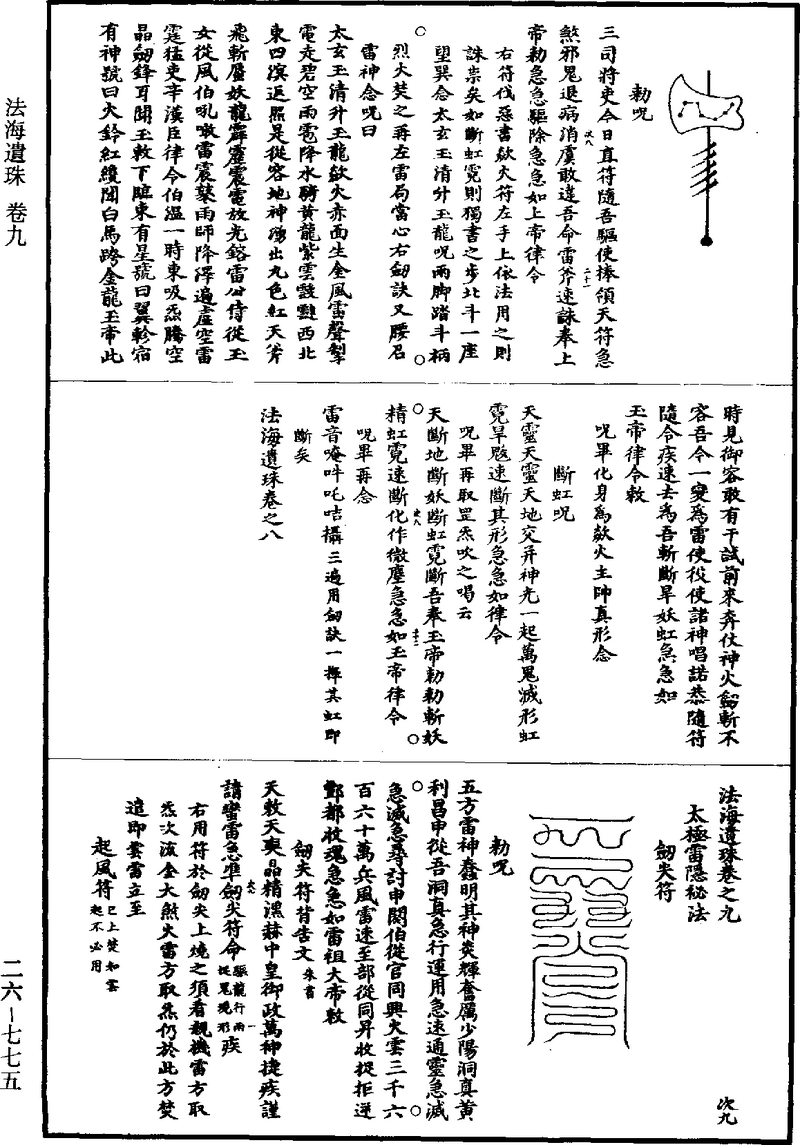 法海遺珠 卷九
二六—七七五
勅呪
三司將吏今日直符隨吾驅使捧領天符急
煞邪鬼退病消虞敢違吾命雷斧速誅奉上
帝勅急急驅除急急如上帝律令
右符伐惡書欻火符左手上依法用之則
誅祟矣如斷虹霓則獨書之步北斗一座
望巽念太玄玉清升玉龍呪兩脚踏斗柄
烈火焚之再左雷局當心右劒訣叉腰召
雷神念呪曰
太玄玉清升玉龍欻火赤面生金風雷聲掣
電走碧空雨雹降水騎黃龍紫雲靉靆西北
東四溟返照是從容地神湧出九色紅天斧
飛斬蜃妖龍霹靂震電放光鎔雷公侍從玉
女從風伯吼噉雷震鼕雨師降澤遍虛空雷
霆猛吏辛漢臣律令伯溫一時東吸炁騰空
晶劒鋒耳聞玉敕下臨東有星號曰翼軫宿
有神號曰火鈴紅纓閒白馬跨金龍玉帝此
時見御容敢有干試前來奔仗神火劒斬不
容吾今一變爲雷使役使諸神唱諾恭隨符
隨令疾速去爲吾斬斷旱妖虹急急如
玉帝律令敕
呪畢化身爲欻火主帥真形念
斷虹呪
天靈天靈天地交并神光一起萬鬼滅形虹
霓旱魃速斷其形急急如律令
呪畢再取罡炁吹之喝云
天斷地斷妖斷虹霓斷吾奉玉帝勅勅斬妖
精虹霓速斷化作微塵急急如玉帝律令
呪畢再念
雷音唵吽吒咭攝三遍用劒訣一揮其虹即
斷矣
法海遺珠卷之八
法海遺珠卷之九
次九
太極雷隱秘法
劒尖符
勅呪
五方雷神蠢明其神炎輝奮厲少陽洞真黃
利昌申從吾洞真急行運用急速通靈急滅
急滅急尋討申閼伯從官同興火雲三千六
百六十萬兵風雷速至部從同昇收捉拒逆
酆都收魂急急如雷祖大帝敕
劒尖符背告文朱書
天敕天輿晶精濕赫中皇御政萬神捷疾謹
請蠻雷急準劒尖符命驅龍行雨捉鬼現形疾
右用符於劒尖上燒之須看親機雷方取
炁次流金大煞火雷方取炁仍於此方焚
遣即雲雷立至
起風符已上焚如雲起不必用